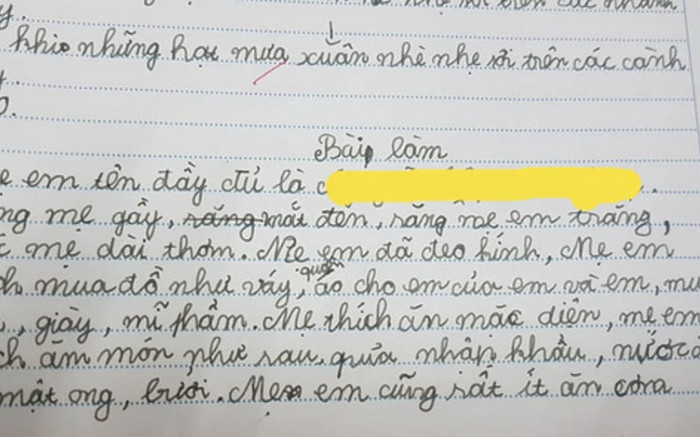 khio những hạt mưa xuân nhè nhẹ rơi trên các cành
Bài làm
em tên đầy đủ là
mẹ gầy, răng mắt đen, răng mẹ em trăng,
mẹ dài thơm. Mẹ em đã đeo kính, Mẹ em
mua đồ như váy, quần áo cho em của em và em, mu
, giày, mĩ phẩm. Mẹ thích ăn mặc diện, mẹ em
ăm món như sau, quửa nhập khẩu, nước
mật ong, bưởi. Mẹ em cũng rất ít ăn cơm